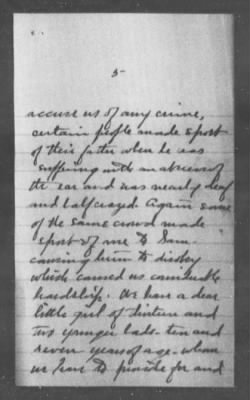 5
accuse us of any crime,
certain people made sport
of their father when he was
suffering with an abscess of
the ear and was nearly deaf
and half crazed. Again some
of the same crowd made
sport of me to Sam
causing him to disobey
which caused us considerable
hardship. We have a dear
little girl of thirteen and
two younger lads - ten and
seven years of age - whom
we have to provide for and